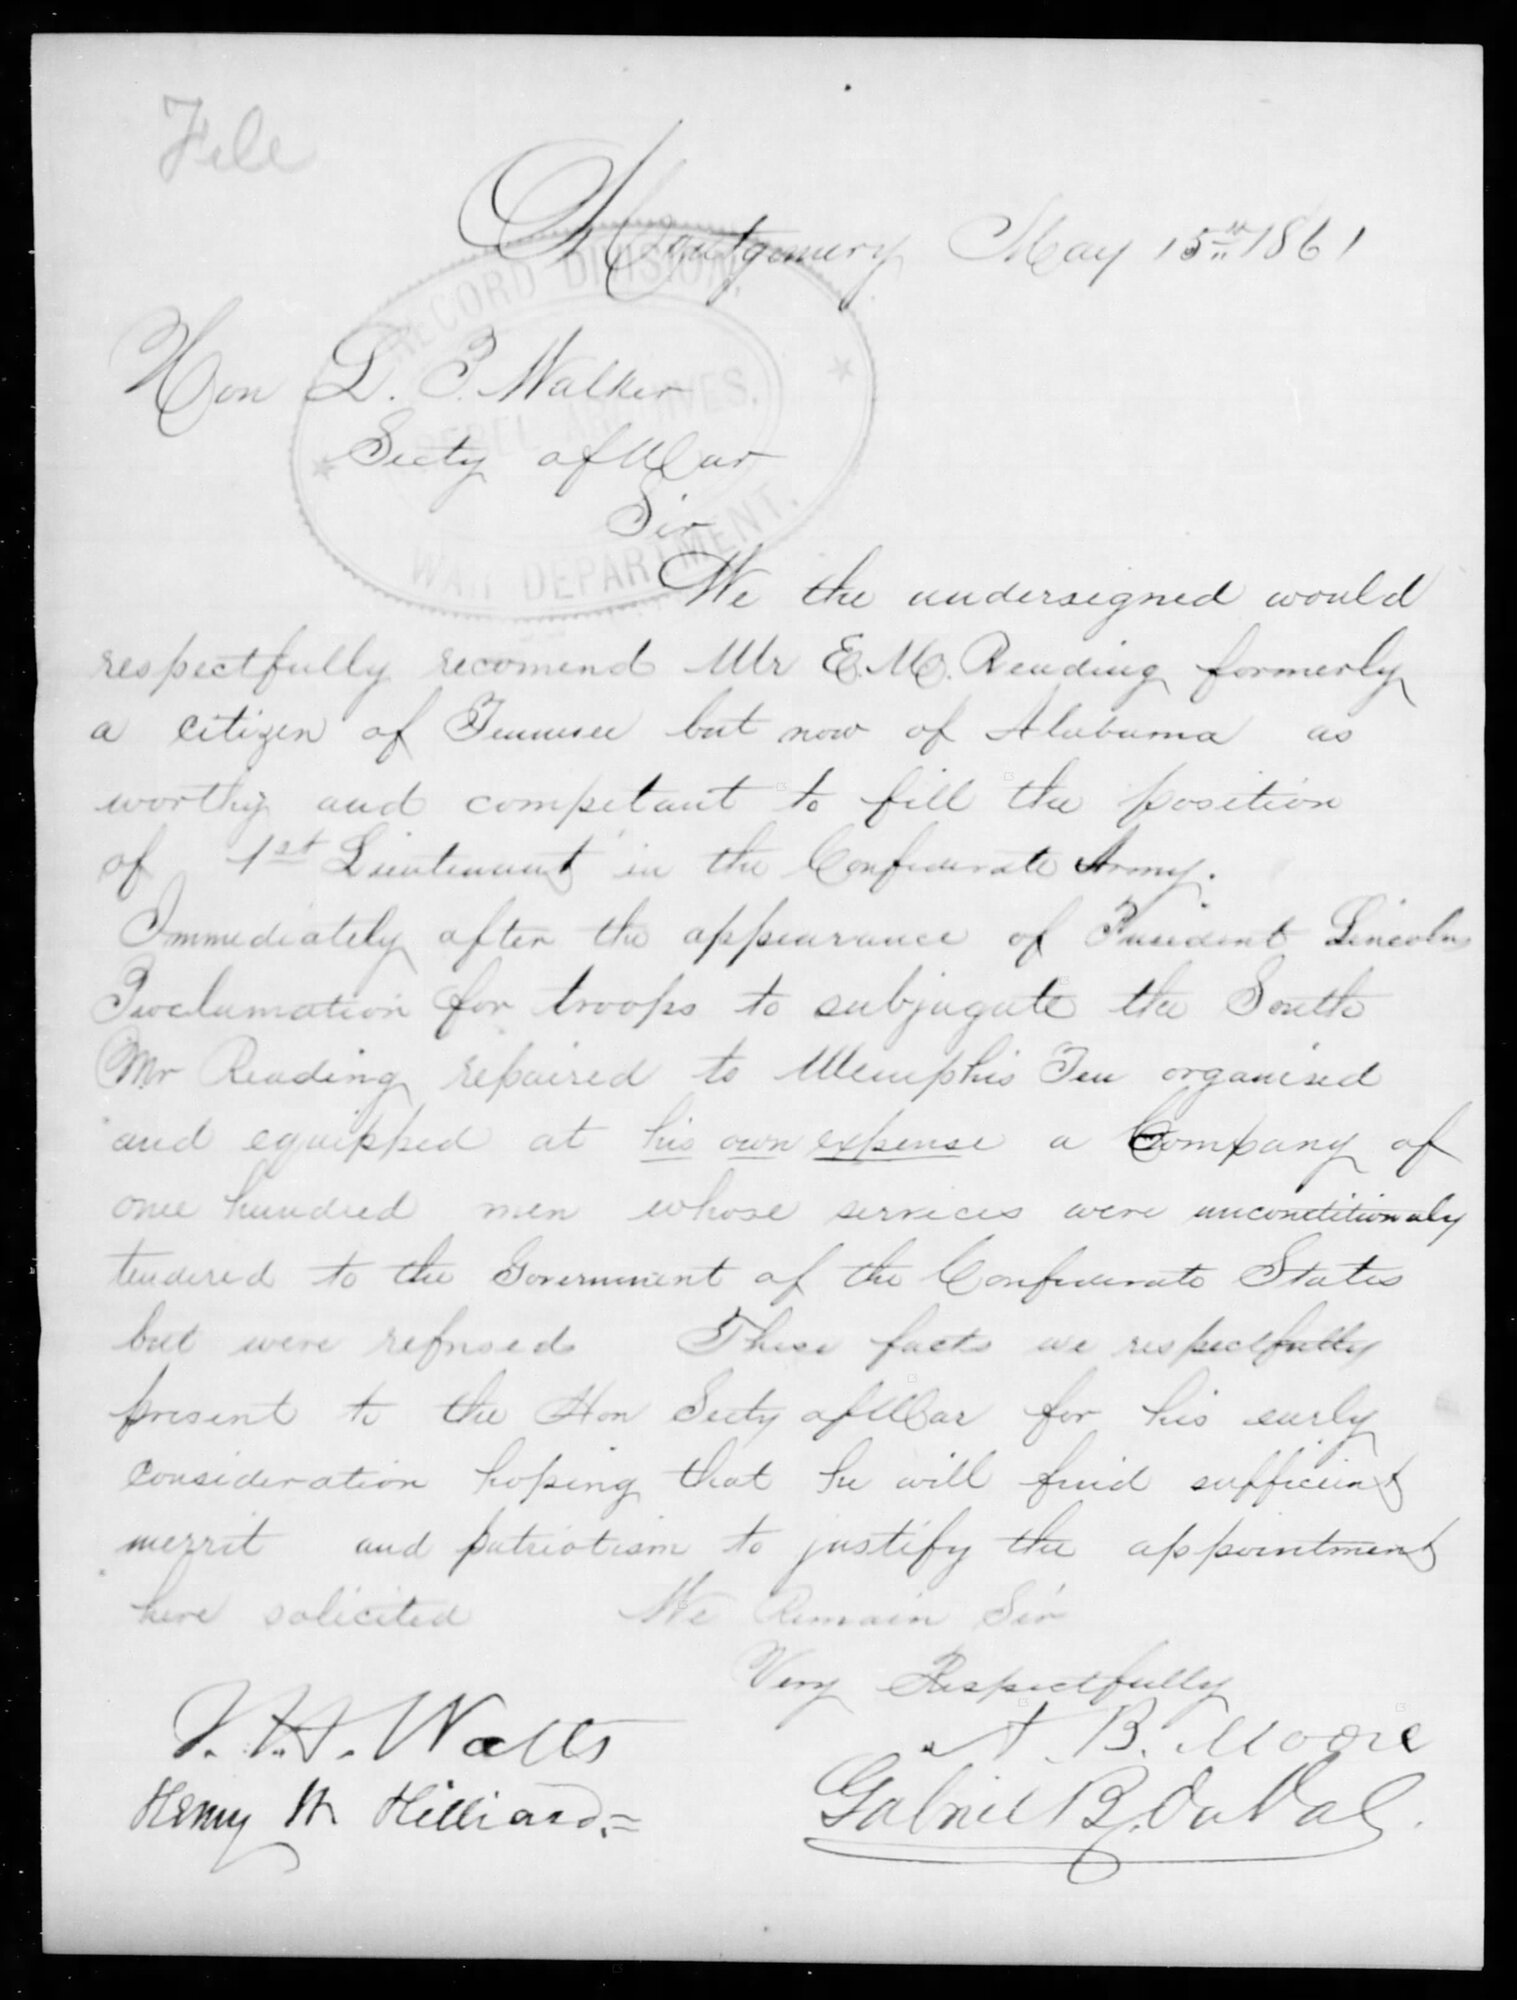 File
Montgomery May 15th 1861
RECORD DIVISION,
REBEL ARCHIVES.
WAR DEPARTMENT.
Hon L. P. Walker
Secty of War
Sir
We the undersigned would
respectfully recomend Mr E. M. Reading formerly
a citizen of Tennesee but now of Alabama as
worthy and competant to fill the position
of 1st Lieutenant in the Confederate Army.
Immediately after the appearance of President Lincolns
Proclamation for troops to subjugate the South
Mr Reading repaired to Memphis Ten organised
and equipped at his own expense a Company of
one hundred men whose services were unconditionaly
tendered to the Government of the Confederate States
but were refused These facts we respectfully
present to the Hon Secty of War for his early
consideration hoping that he will find sufficient
merrit and patriotism to justify the appointment
here solicited We Remain Sir
Very Respectfully
A. B. Moore
T. H. Watts
Gabriel B. DuVal.
Henry W. Hilliard.=